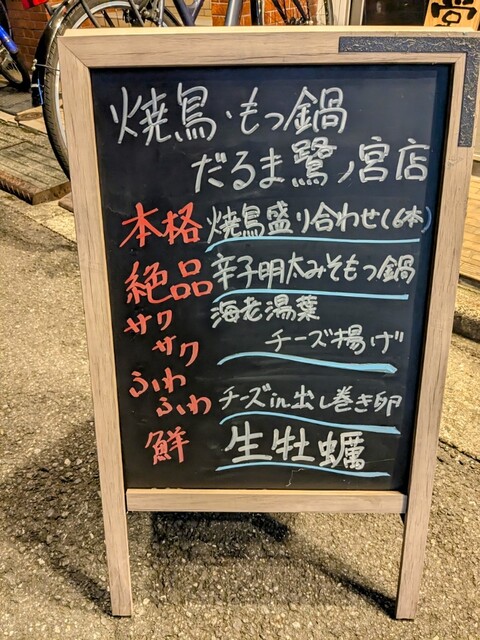 焼鳥・もつ鍋
だるま鷺ノ宮店
本格 焼鳥盛り合わせ(6本)
絶品 辛子明太みそもつ鍋
サクサク 海老湯葉
チーズ揚げ
ふわふわ チーズin出し巻き卵
鮮 生牡蠣
営